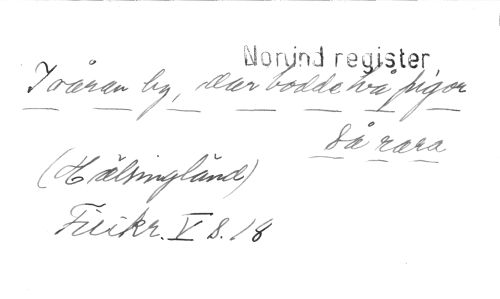 Norlind register
I våran by, där bodde två pigor
så rara
(Hälsingland)
V s. 18